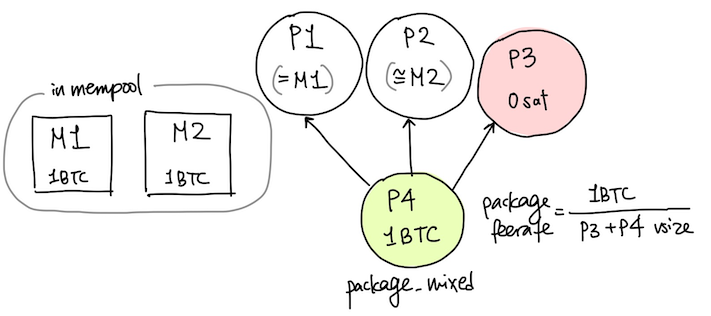 in mempool
M1
1BTC
M2
1BTC
P1
(=M1)
P2
(≅M2)
P3
0 sat
P4
1BTC
package_mixed
package
feerate
=
1BTC
P3+P4 vsize